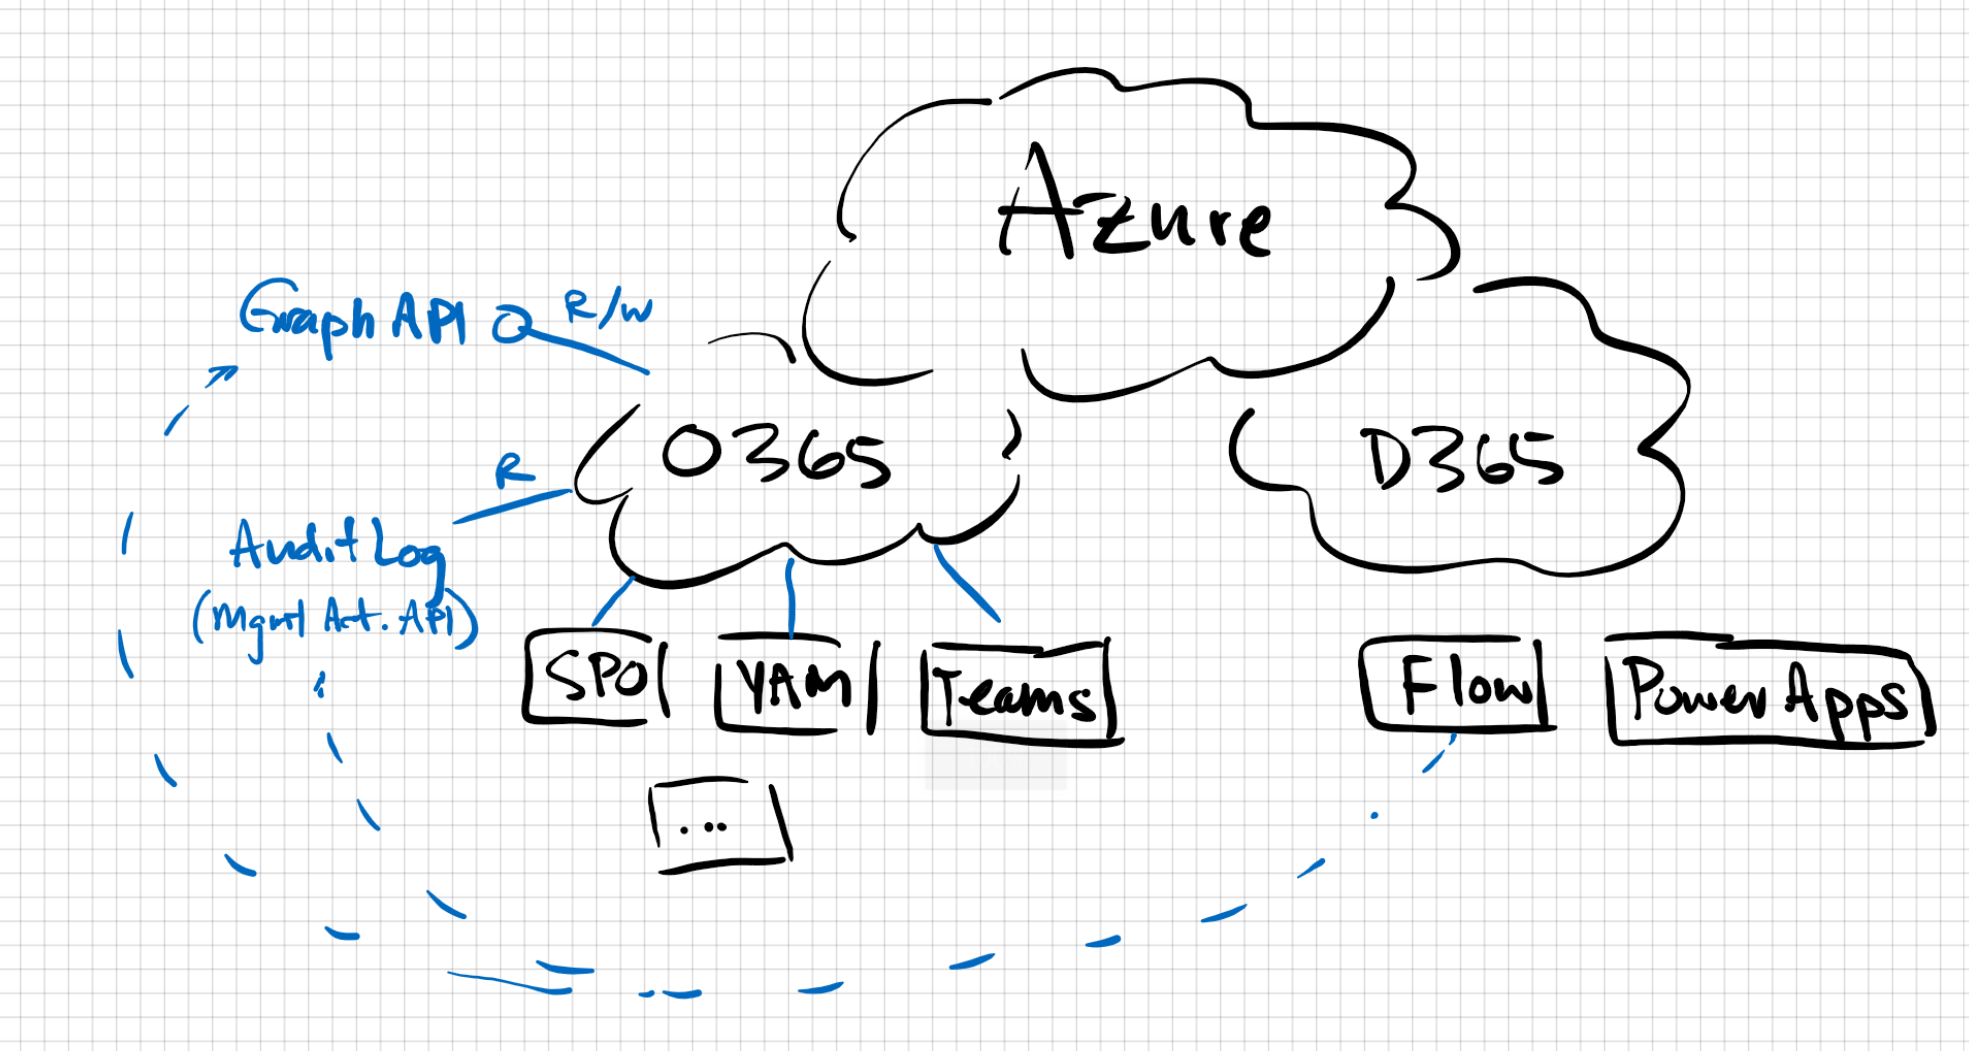 Azure
Graph API R/W
O365
D365
R
Audit Log
(Mgmt Act. API)
SPO
YAM
Teams
Flow
PowerApps
...